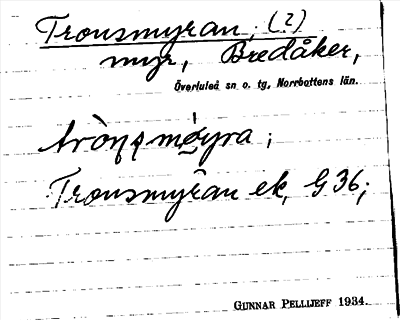 Tronsmyran, (?)
myr, Bredåker,
Överluleå sn o. tg, Norrbottens län.
Tronsmyran ek, G 36;
GUNNAR PELLIJEFF 1934.